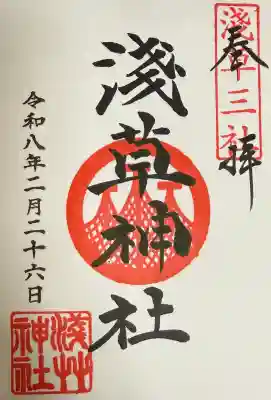 奉拝
淺草三社
淺草神社
令和八年二月二十六日
淺草神社